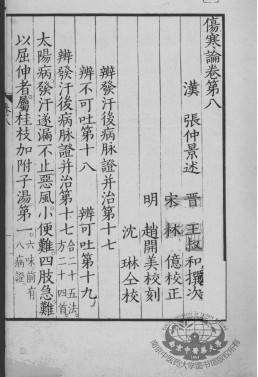 傷寒論卷第八
漢 張仲景述 晉 王叔和撰次
宋 林 億校正
明 趙開美校刻
沈 琳仝校
辨發汗後病脉證并治第十七
辨不可吐第十八 辨可吐第十九
辨發汗後病脉證并治第十七 合二十五法 方二十四首
太陽病發汗遂漏不止惡風小便難四肢急難
以屈伸者屬桂枝加附子湯第一 六味前有八病證